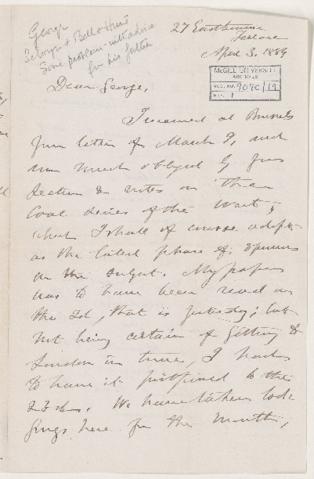 George
27 Eastbourne Terrace
April 3. 1889
McGILL UNIVERSITY
ARCHIVES
ACC. NO. 909C/19
REF. 1
Dear George,
I received at Brussels
your letter of March 9, and
am much obliged for your
section & notes on the
Coal series of the West,
which I shall of course adopt
as the latest phase of opinion
on the subject. My paper
was to have been read on
the 2d, that is yesterday; but
not being certain of getting to
London in time, I had
to have it postponed to the
We have taken lod-
gings here for the month,